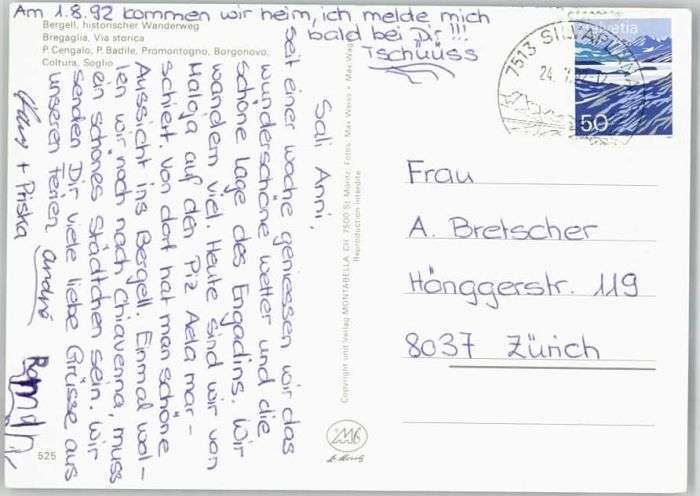 Am 1.8.92 kommen wir heim, ich melde mich
bald bei Dir !!!
Tschüüss
Bergell, historischer Wanderweg
Bregaglia, Via storica
P. Cengalo, P. Badile, Promontogno, Borgonovo,
Coltura, Soglio
Sali Anni,
Seit einer Woche geniessen wir das
wunderschöne Wetter und die
schöne Lage des Engadins. Wir
wandern viel. Heute sind wir von
Maloja auf den Piz Aela mar-
schiert. Von dort hat man schöne
Aussicht ins Bergell. Einmal wol-
len wir noch nach Chiavenna, muss
ein schönes Städtchen sein. Wir
senden Dir viele liebe Grüsse aus
unseren Ferien André
+ Priska
525
Copyright und Verlag MONTABELLA, CH 7500 St. Moritz, Fotos: Max Weiss + Max Wag
Reproduction interdite
St. Moritz
helvetia
50
7513 SILVAPLANA
24.7.92-17
Frau
A. Bretscher
Hönggerstr. 119
8037 Zürich